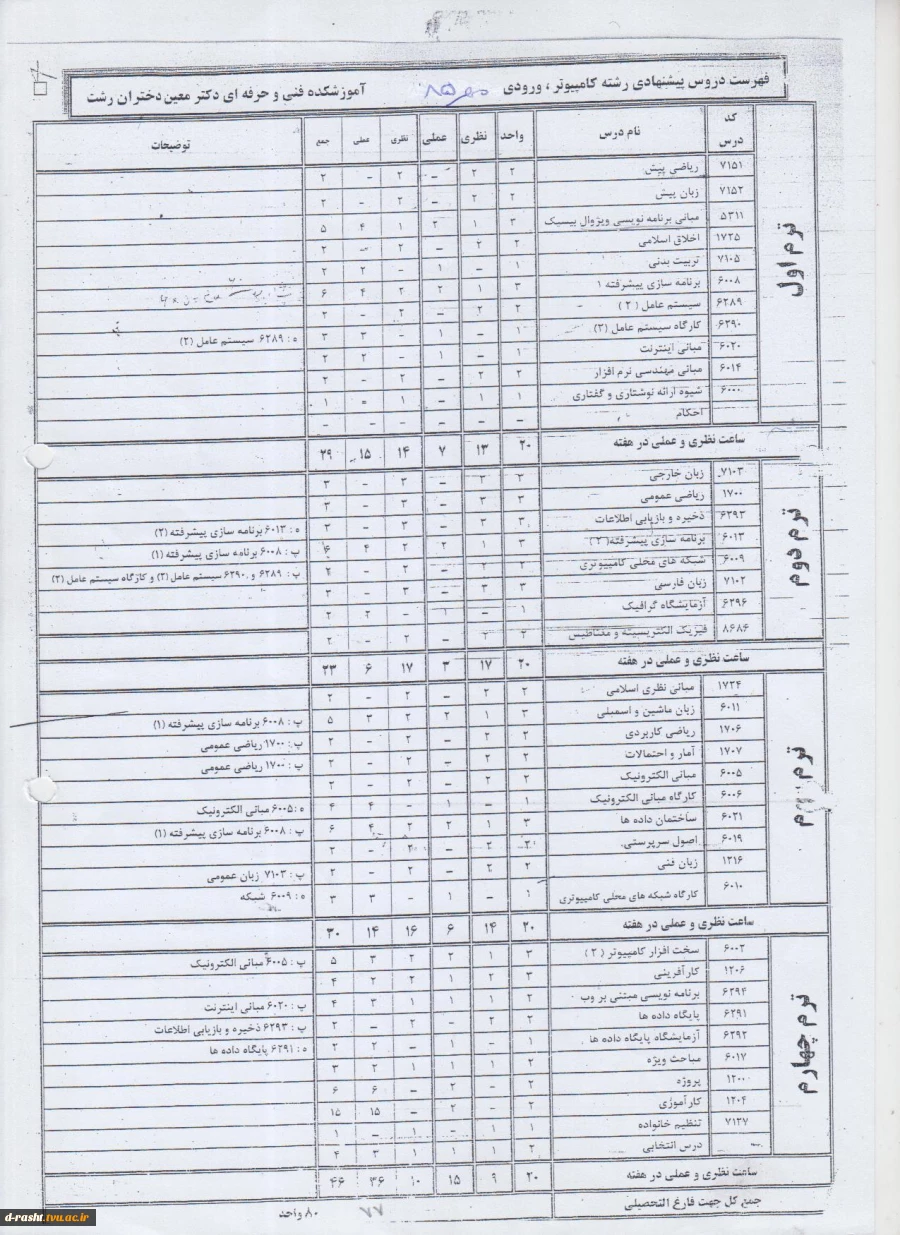 فهرست دروس پیشنهادی رشته کامپیوتر ، ورودی مهر ۸۵ آموزشکده فنی و حرفه ای دکتر معین دختران رشت
کد درس نام درس واحد نظری عملی نظری عملی جمع توضیحات
ترم اول
۷۱۵۱ ریاضی پیش ۲ ۲ - ۲ - ۲
۷۱۵۲ زبان پیش ۲ ۲ - ۲ - ۲
۵۳۱۱ مبانی برنامه نویسی ویژوال بیسیک ۳ ۱ ۲ ۱ ۴ ۵
۱۷۲۵ اخلاق اسلامی ۲ ۲ - ۲ - ۲
۷۱۰۵ تربیت بدنی ۱ - ۱ - ۲ ۲
۶۰۰۸ برنامه سازی پیشرفته ۱ ۳ ۱ ۲ ۲ ۴ ۶
۶۲۸۹ سیستم عامل ( ۲ ) ۲ ۲ - ۲ - ۲
۶۲۹۰ کارگاه سیستم عامل (۲) ۱ - ۱ - ۳ ۳ ه : ۶۲۸۹ سیستم عامل (۲)
۶۰۲۰ مبانی اینترنت ۱ - ۱ - ۲ ۲
۶۰۱۴ مبانی مهندسی نرم افزار ۲ ۲ - ۲ - ۲
۶۰۰۰ شیوه ارائه نوشتاری و گفتاری ۱ ۱ - ۱ - ۱
احکام - - - - - -
ساعت نظری و عملی در هفته ۲۰ ۱۳ ۷ ۱۴ ۱۵ ۲۹
ترم دوم
۷۱۰۳ زبان خارجی ۳ ۳ - ۳ - ۳
۱۷۰۰ ریاضی عمومی ۳ ۳ - ۳ - ۳
۶۲۹۳ ذخیره و بازیابی اطلاعات ۳ ۳ - ۳ - ۳ ه : ۶۰۱۳ برنامه سازی پیشرفته (۲)
۶۰۱۳ برنامه سازی پیشرفته( ۲ ) ۳ ۱ ۲ ۲ ۴ ۶ پ : ۶۰۰۸ برنامه سازی پیشرفته (۱)
۶۰۰۹ شبکه های محلی کامپیوتری ۲ ۲ - ۲ - ۲ پ : ۶۲۸۹ و ۶۲۹۰ سیستم عامل (۲) و کارگاه سیستم عامل (۲)
۷۱۰۲ زبان فارسی ۳ ۳ - ۳ - ۳
۶۲۹۶ آزمایشگاه گرافیک ۱ - ۱ - ۲ ۲
۸۶۸۶ فیزیک الکتریسیته و مغناطیس ۲ ۲ - ۲ - ۲
ساعت نظری و عملی در هفته ۲۰ ۱۷ ۳ ۱۷ ۶ ۲۳
ترم سوم
۱۷۲۴ مبانی نظری اسلامی ۲ ۲ - ۲ - ۲
۶۰۱۱ زبان ماشین و اسمبلی ۳ ۱ ۲ ۲ ۳ ۵ پ : ۶۰۰۸ برنامه سازی پیشرفته (۱)
۱۷۰۶ ریاضی کاربردی ۲ ۲ - ۲ - ۲ پ : ۱۷۰۰ ریاضی عمومی
۱۷۰۷ آمار و احتمالات ۲ ۲ - ۲ - ۲ پ : ۱۷۰۰ ریاضی عمومی
۶۰۰۵ مبانی الکترونیک ۲ ۲ - ۲ - ۲
۶۰۰۶ کارگاه مبانی الکترونیک ۱ - ۱ - ۴ ۴ ه : ۶۰۰۵ مبانی الکترونیک
۶۰۲۱ ساختمان داده ها ۳ ۱ ۲ ۲ ۴ ۶ پ : ۶۰۰۸ برنامه سازی پیشرفته (۱)
۶۰۱۹ اصول سرپرستی ۲ ۲ - ۲ - ۲
۱۲۱۶ زبان فنی ۲ ۲ - ۲ - ۲ پ : ۷۱۰۳ زبان عمومی
۶۰۱۰ کارگاه شبکه های محلی کامپیوتری ۱ - ۱ - ۳ ۳ ه : ۶۰۰۹ شبکه
ساعت نظری و عملی در هفته ۲۰ ۱۴ ۶ ۱۶ ۱۴ ۳۰
ترم چهارم
۶۰۰۲ سخت افزار کامپیوتر ( ۲ ) ۳ ۱ ۲ ۲ ۳ ۵ پ : ۶۰۰۵ مبانی الکترونیک
۱۲۰۶ کارآفرینی ۳ ۲ ۱ ۲ ۲ ۴
۶۲۹۴ برنامه نویسی مبتنی بر وب ۲ ۱ ۱ ۱ ۳ ۴ پ : ۶۰۲۰ مبانی اینترنت
۶۲۹۱ پایگاه داده ها ۲ ۲ - ۲ - ۲ پ : ۶۲۹۳ ذخیره و بازیابی اطلاعات
۶۲۹۲ آزمایشگاه پایگاه داده ها ۱ - ۱ - ۲ ۲ ه : ۶۲۹۱ پایگاه داده ها
۶۰۱۷ مباحث ویژه ۲ ۱ ۱ ۱ ۲ ۳
۱۲۰۰ پروژه ۲ - ۲ - ۶ ۶
۱۲۰۴ کارآموزی ۲ - ۲ - ۱۵ ۱۵
۷۱۲۷ تنظیم خانواده ۱ ۱ - ۱ - ۱
درس انتخابی ۲ ۱ ۱ ۱ ۳ ۴
ساعت نظری و عملی در هفته ۲۰ ۹ ۱۵ ۱۰ ۳۶ ۴۶
جمع کل جهت فارغ التحصیلی ۷۷ ۸۰ واحد
d-rasht.tvu.ac.ir